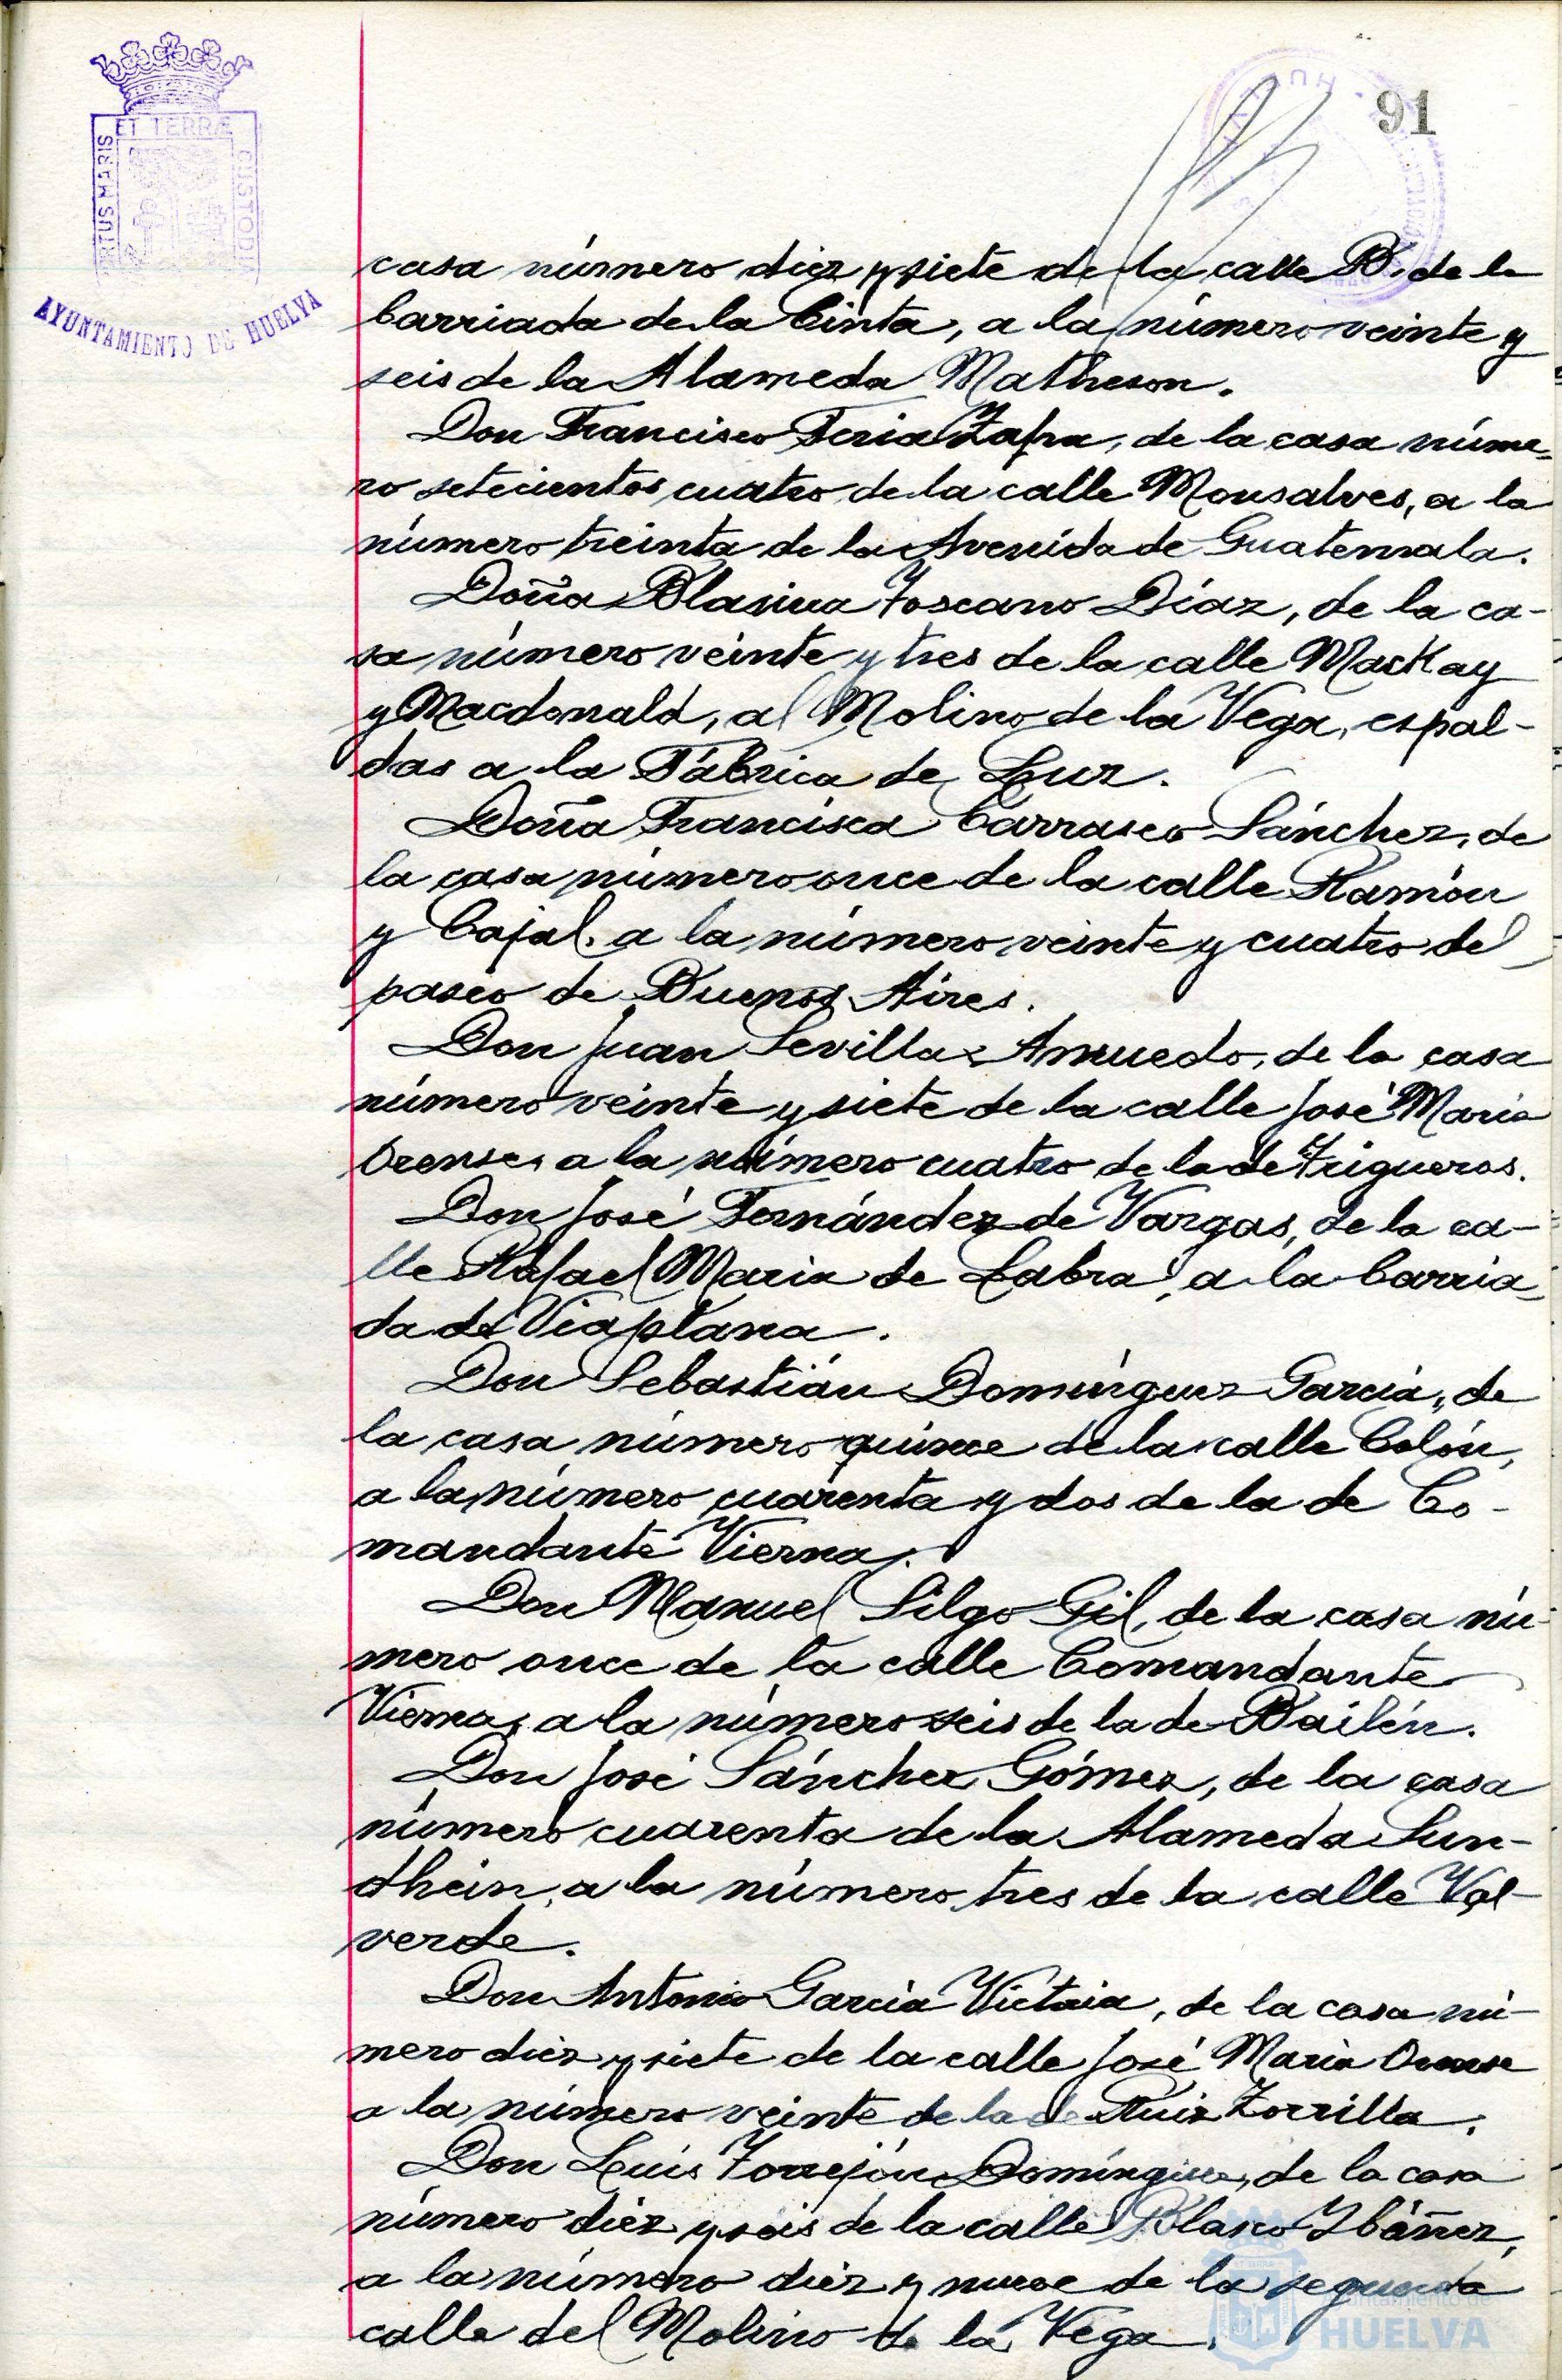 91
ET TERRÆ
PORTUS MARIS
CUSTODIA
AYUNTAMIENTO DE HUELVA
casa número diez y siete de la calle B. de la
barriada de la Cinta, a la número veinte y
seis de la Alameda Matheson.
Don Francisco Feria Zafra, de la casa núme-
ro setecientos cuatro de la calle Monsalves, a la
número treinta de la Avenida de Guatemala.
Doña Blasina Toscano Díaz, de la ca-
sa número veinte y tres de la calle MacKay
y Macdonald, al Molino de la Vega, espal-
das a la Fábrica de Luz.
Doña Francisca Carrasco Sánchez, de
la casa número once de la calle Ramón
y Cajal, a la número veinte y cuatro del
paseo de Buenos Aires.
Don Juan Sevilla Amuedo, de la casa
número veinte y siete de la calle José María
Orense, a la número cuatro de la de Trigueros.
Don José Fernández de Vargas, de la ca-
lle Rafael María de Labra, a la barria-
da de Viaplana.
Don Sebastián Domínguez García, de
la casa número quince de la calle Colón,
a la número cuarenta y dos de la de Co-
mandante Vierna.
Don Manuel Silgo Gil, de la casa nú-
mero once de la calle Comandante
Vierna, a la número seis de la de Bailén.
Don José Sánchez Gómez, de la casa
número cuarenta de la Alameda Sun-
dhein, a la número tres de la calle Val-
verde.
Don Antonio García Victoria, de la casa nú-
mero diez y siete de la calle José María Orense
a la número veinte de la de Ruiz Zorrilla.
Don Luis Torrejón Domínguez, de la casa
número diez y seis de la calle Blasco Ibáñez,
a la número diez y nueve de la segunda
calle del Molino de la Vega.
Ayuntamiento de
HUELVA